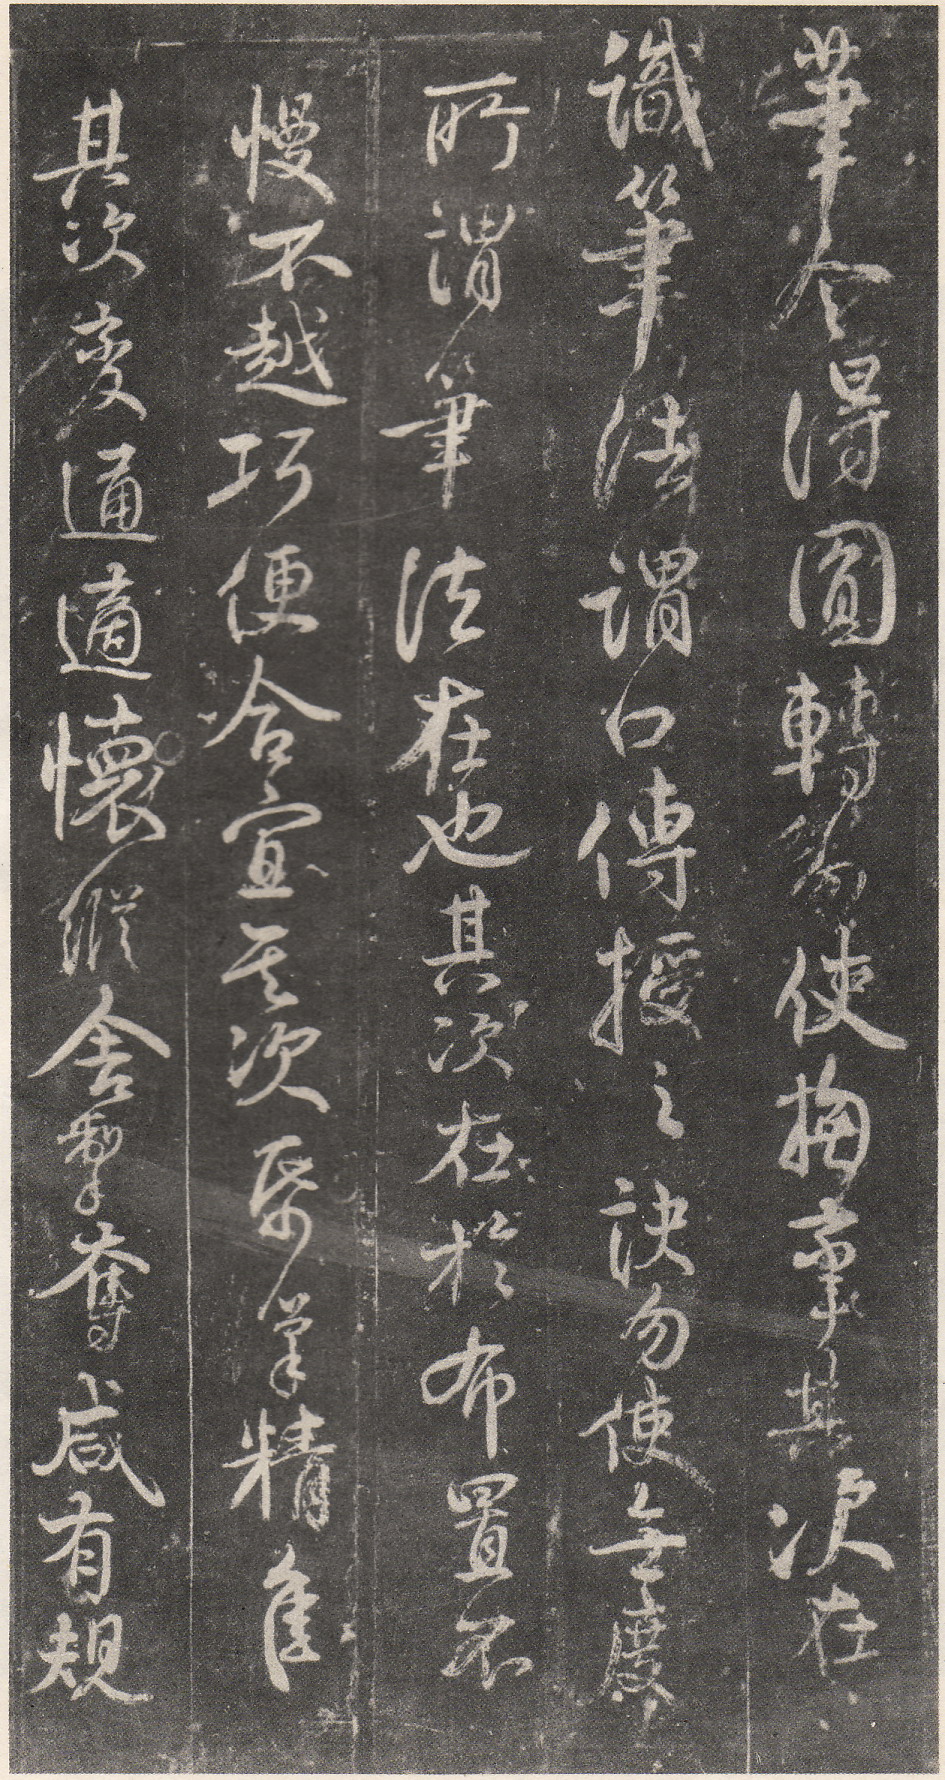 筆令得圓轉勿使拘牽其次在
識筆法謂口傳授之訣勿使無度
所謂筆法在也其次在於布置不
慢不越巧便合宜其次紙筆精佳
其次變通適懷縱舍掣奪咸有規